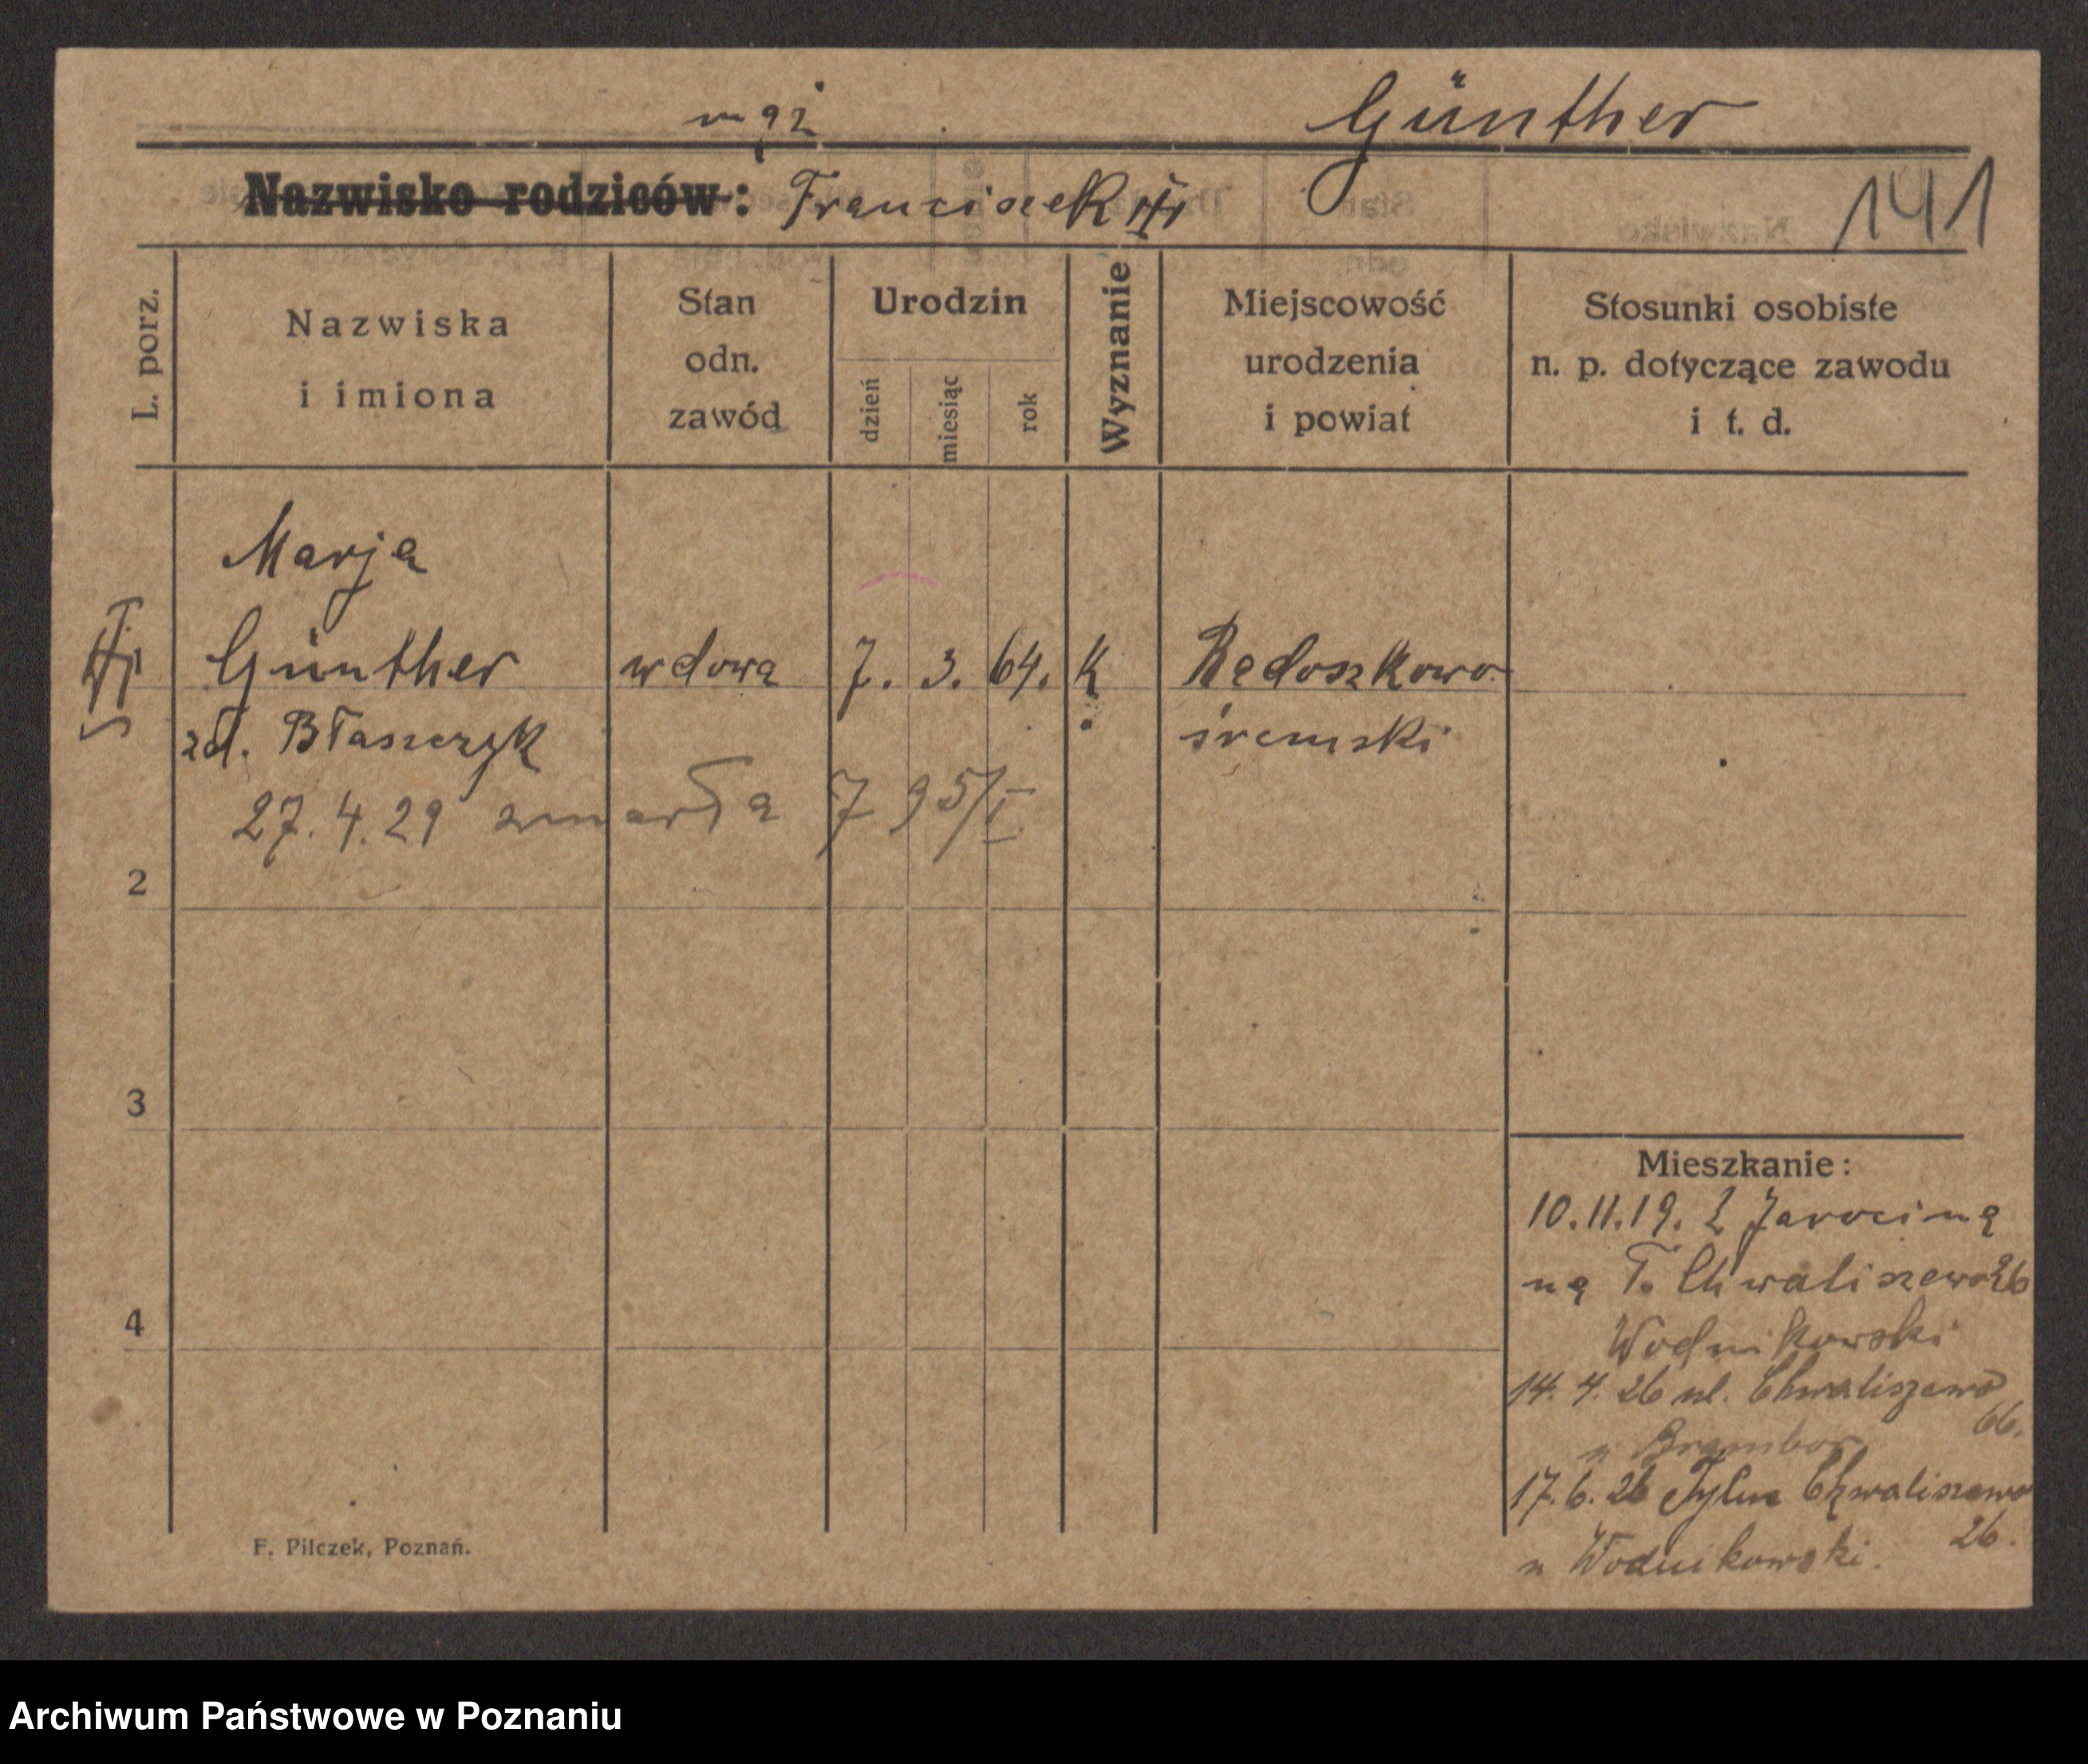 mąż Günther
Nazwisko rodziców: Franciszek
141
L. porz.
Nazwiska
i imiona
Stan
odn.
zawód
Urodzin
dzień
miesiąc
rok
Wyznanie
Miejscowość
urodzenia
i powiat
Stosunki osobiste
n. p. dotyczące zawodu
i t. d.
Marja
Günther wdowa 7. 3. 64. K Radoszkowo
zd. Błaszczyk śremski
27. 4. 29 zmarła
2
3
4
Mieszkanie:
10.11.19. Z Jarocina
na T. Chwaliszewo 26
Wodnikowski
14. 4. 26 ul. Chwaliszewo
66.
17. 6. 26 Tylne Chwaliszewo
26.
u Wodnikowski.
F. Pilczek, Poznań.
Archiwum Państwowe w Poznaniu